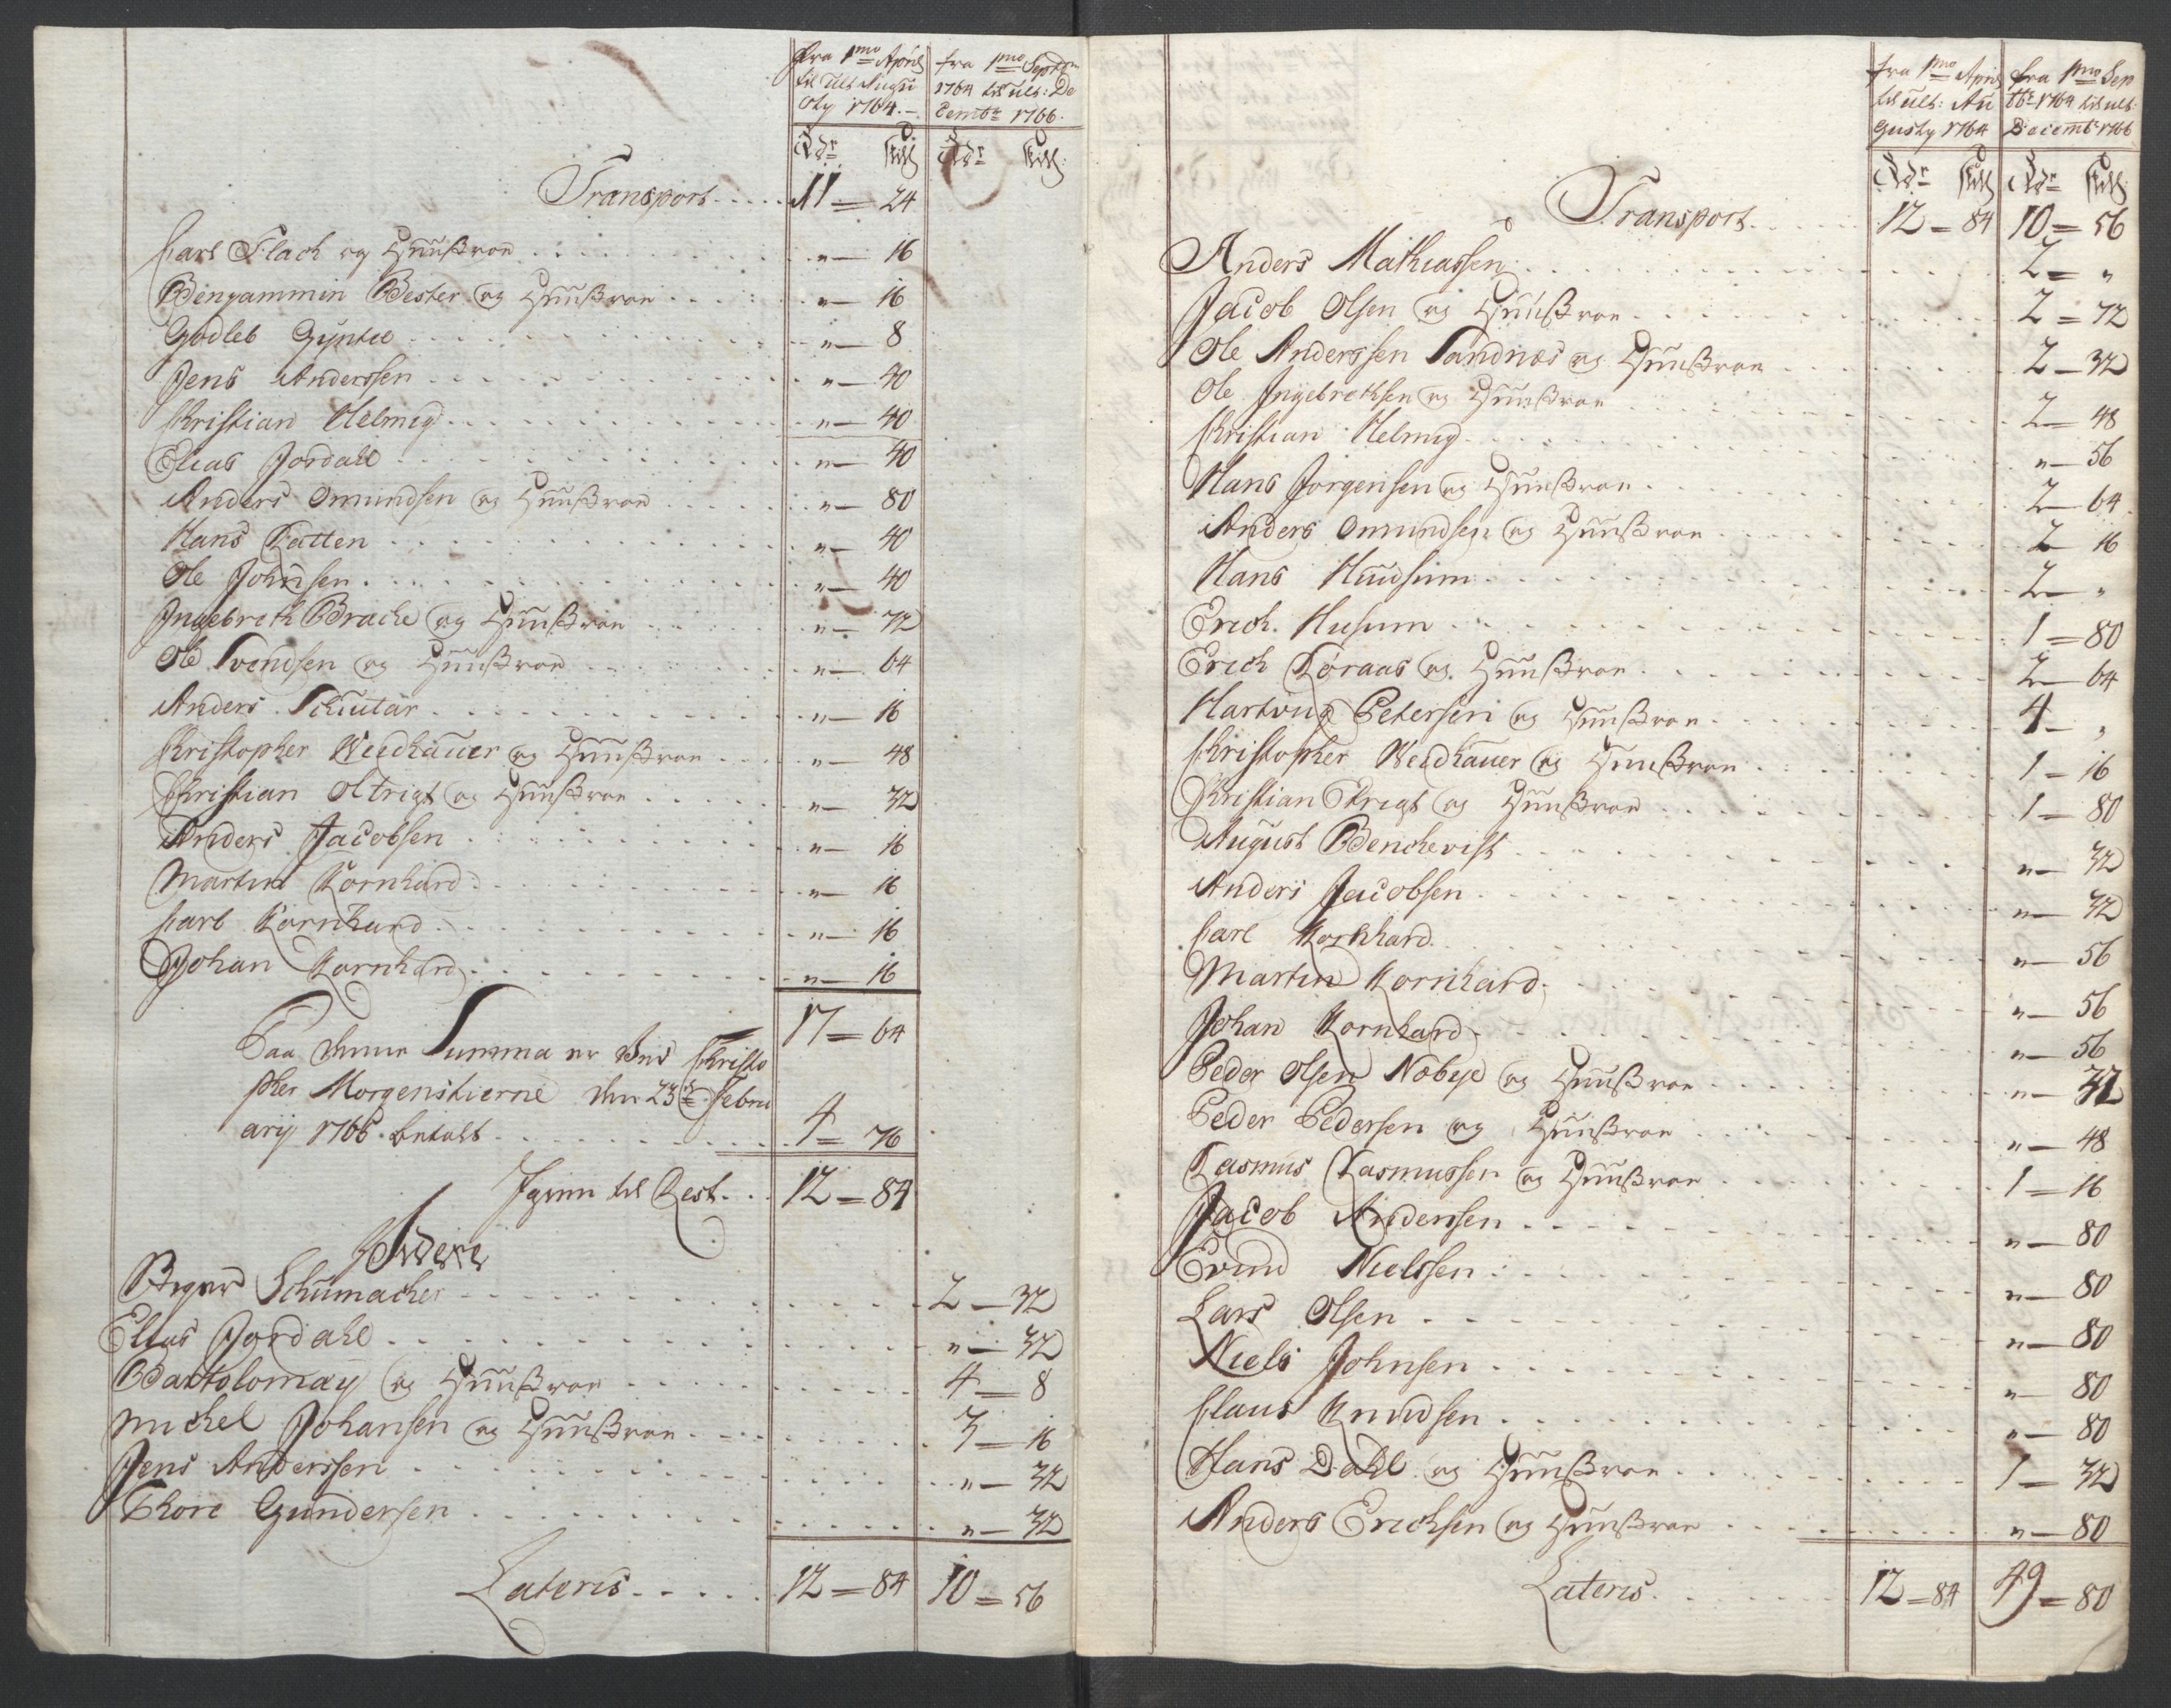 fra 1mo April
til ult: Augu
sty 1764.
fra 1mo Septem
1764 til ult: De
cembr 1766.
Rdr Skill
Rdr Skill
Transport 11 = 24
Carl Flach og Huusstroe " — 16
Bengammin Bester og Huusstroe " — 16
Godleb Gÿntel " — 8
Jens Anderssen " — 40
Christian Helmig " — 40
Elias Jordall " — 40
Anders Omundsen og Huusstroe " — 80
Hans Ratten " — 40
Ole Johnsen " — 40
Ingebreth Brache og Huusstroe " — 72
Ole Svendsen og Huusstroe " — 64
Anders Schutar " — 16
Christopher Weedhauer og Huusstroe " — 48
Christian Oltrigt og Huusstroe " — 32
Anders Jacobsen " — 16
Martin Kornhard " — 16
Carl Kornhard " — 16
Johan Kornhard " — 16
17 = 64
Paa denne Summa er ved Christo
pher Morgenstierne den 23de Febru
arÿ 1766 betalt 4 = 76
Igien til Rest 12 = 84
Videre
Birger Schumacher 2 — 32
Elias Jordahl " — 32
Bartolomaÿ og Huusstroe 4 — 8
Michel Johansen og Huusstroe 3 — 16
Jens Anderssen " — 32
Thore Gundersen " — 32
Lateris 12 = 84 10 = 56
fra 1mo April
til ult: Au
gusty 1764
fra 1mo Sep
tbr 1764 til ult:
Decembr 1766
Rdr Skill
Rdr Skill
Transport 12 = 84 10 = 56
Anders Mathiassen 2 = "
Jacob Olsen og Huusstroe 2 = 72
Ole Anderssen Sandnæs og Huusstroe 2 — 32
Ole Ingebrethsen og Huusstroe 2 — 48
Christian Helmig " — 56
Hans Jørgensen og Huusstroe 2 — 64
Anders Omundsen og Huusstroe 2 — 16
Hans Huudsum 2 — "
Erich Husum 1 = 80
Erich Røraas og Huusstroe 2 — 64
Hartvig Petersen og Huusstroe 4 — "
Christopher Weedhauer og Huusstroe 1 — 16
Christian Eltrigt og Huusstroe 1 — 80
August Benchevist " — 32
Anders Jacobsen " — 32
Carl Kornhard " — 56
Martin Kornhard " — 56
Johan Kornhard " — 56
Peder Olsen Nobye og Huusstroe " — 32
Peder Pedersen og Huusstroe " — 48
Rasmus Rasmussen og Huusstroe 1 — 16
Jacob Anderssen " — 80
Evend Nielssen " — 80
Lars Olsen " — 80
Niels Johnsen " — 80
Claus Knudsen " — 80
Hans Dahl og Huusstroe 1 — 32
Anders Erichsen og Huusstroe " — 80
Lateris 12 = 84 49 = 80